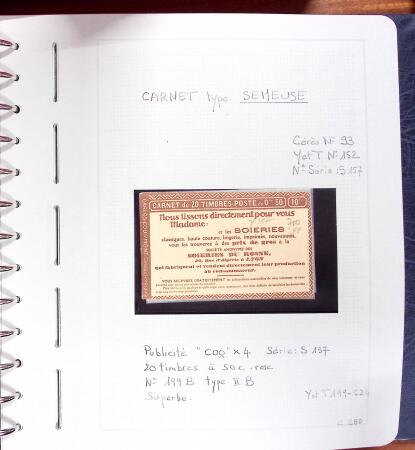 CARNET type SEMEUSE
Cérès N° 93
Y et T N° 152
N° Série : S 157
CARNET de 20 TIMBRES-POSTE à 0Fr 50 10Fr
Nous tissons directement pour vous
Madame:
et les SOIERIES
classiques, haute couture, lingerie, imprimés, nouveautés,
vous les trouverez à des prix de gros à la
SOCIÉTÉ ANONYME DES
SOIERIES DU RHONE,
20, Rue d'Algérie à LYON
qui fabriquent et vendent directement leur production
au consommateur.
Publicité "COQ" x 4 Série : S 157
20 timbres à 50c. rose
N° 199 B type II B
Superbe.
Y et T 199-C24